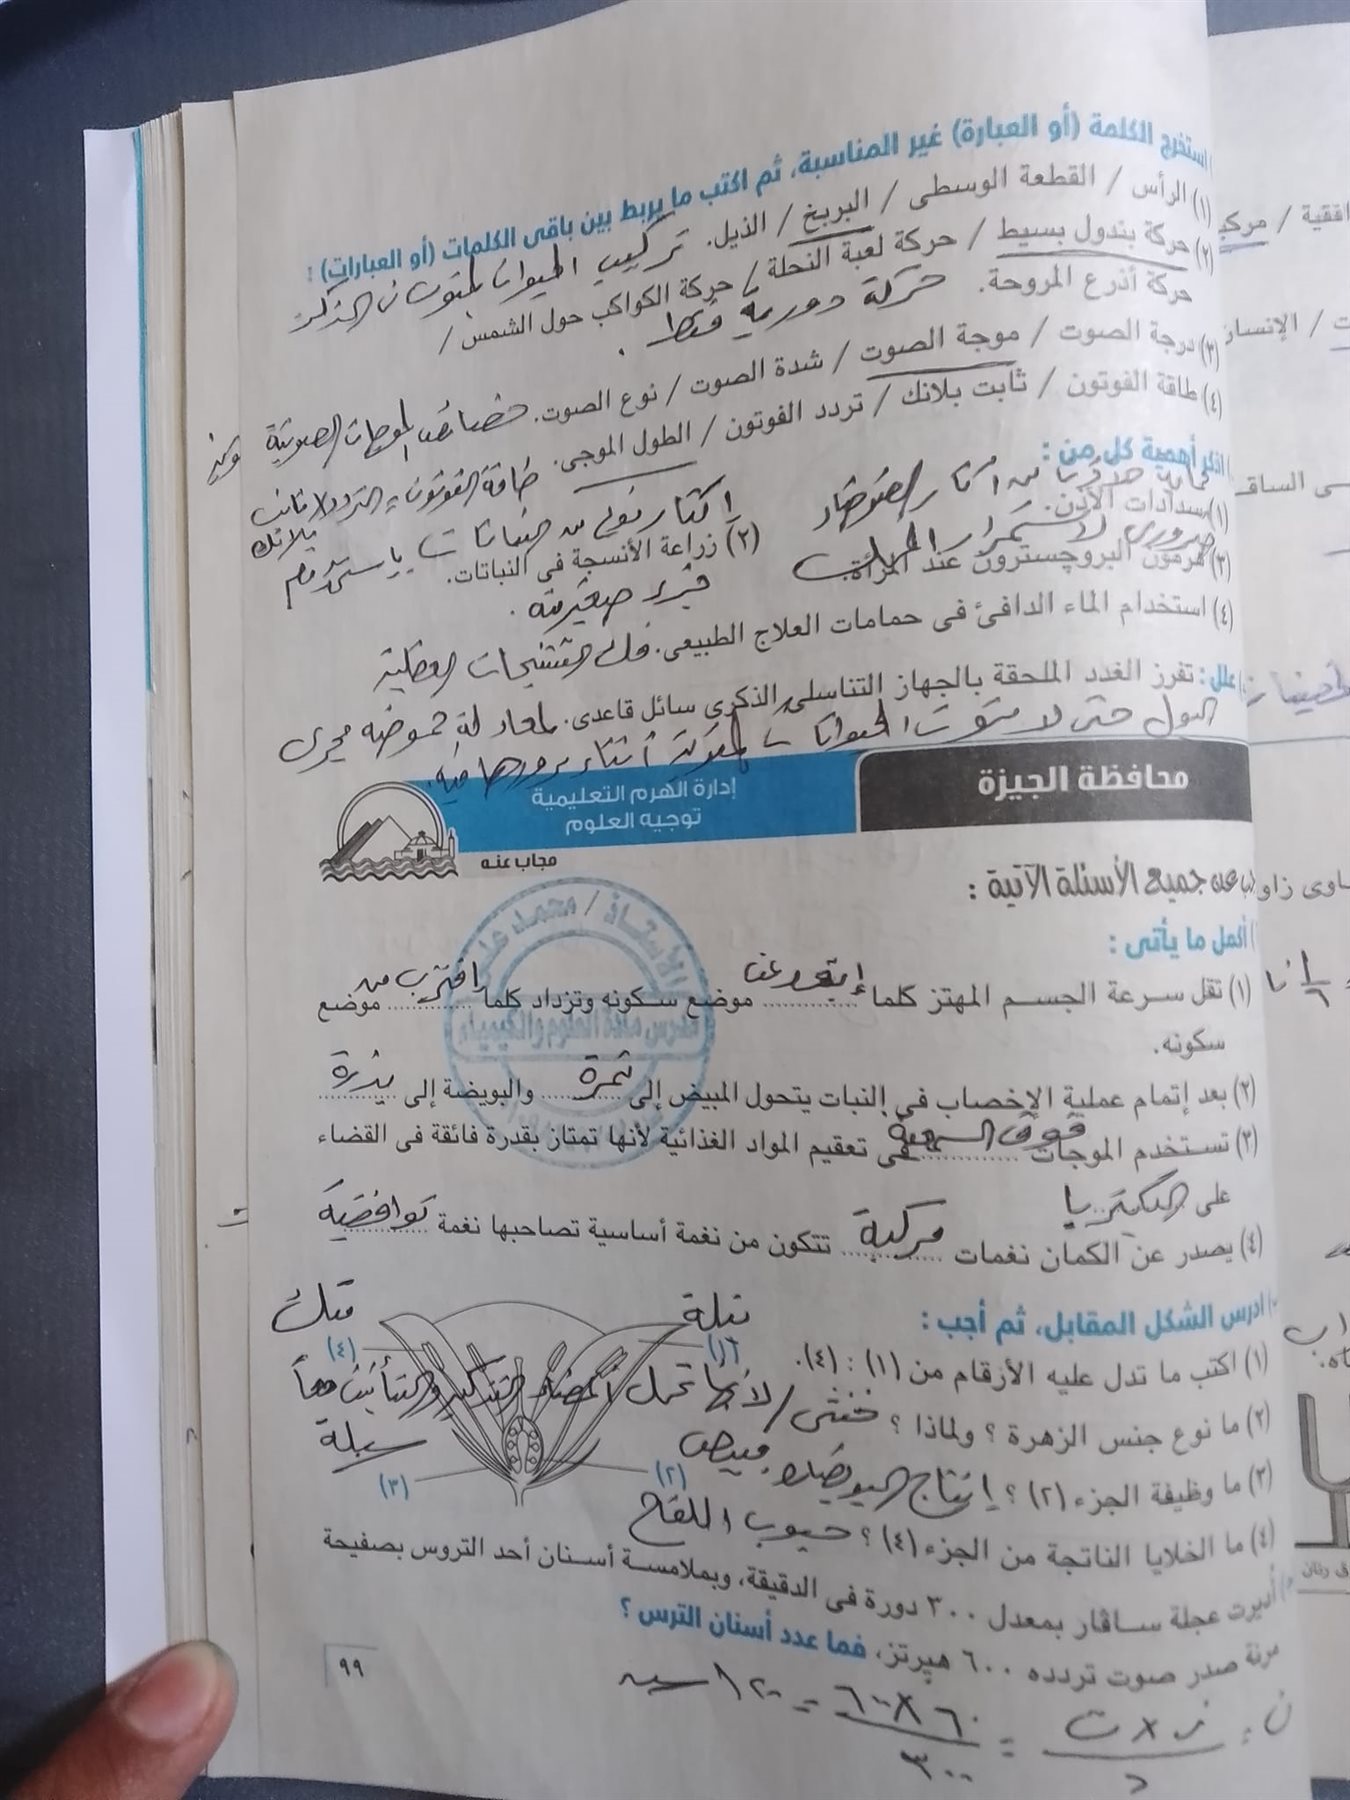 استخرج الكلمة (أو العبارة) غير المناسبة، ثم اكتب ما يربط بين باقى الكلمات (أو العبارات) :
(١) الرأس / القطعة الوسطى / البربخ / الذيل. تركيب الحيوان المنوى الذكر
(٢) حركة بندول بسيط / حركة لعبة النحلة / حركة الكواكب حول الشمس /
حركة أذرع المروحة. حركة دورية فقط.
(٣) درجة الصوت / موجة الصوت / شدة الصوت / نوع الصوت. خصائص الموجات الصوتية
(٤) طاقة الفوتون / ثابت بلانك / تردد الفوتون / الطول الموجى. طاقة الفوتون = التردد × ثابت بلانك
اذكر أهمية كل من :
(١) سدادات الأذن. من آثار الضوضاء
(٢) زراعة الأنسجة فى النباتات. إكثار نوع من النباتات باستخدام جزء صغير منه.
(٣) هرمون البروچسترون عند المرأة. ضرورى لاستمرار الحمل
(٤) استخدام الماء الدافئ فى حمامات العلاج الطبيعى. فك التشنجات العضلية
علل : تفرز الغدد الملحقة بالجهاز التناسلى الذكرى سائل قاعدى. لمعادلة حموضة مجرى
البول حتى لا تموت الحيوانات المنوية أثناء مرورها فيه.
محافظة الجيزة
إدارة الهرم التعليمية
توجيه العلوم
مجاب عنه
جميع الأسئلة الآتية :
أكمل ما يأتى :
(١) تقل سرعة الجسم المهتز كلما إبتعد عن موضع سكونه وتزداد كلما اقترب من موضع
سكونه.
(٢) بعد إتمام عملية الإخصاب فى النبات يتحول المبيض إلى ثمرة والبويضة إلى بذرة
(٣) تستخدم الموجات فوق السمعية فى تعقيم المواد الغذائية لأنها تمتاز بقدرة فائقة فى القضاء
على البكتريا
(٤) يصدر عن الكمان نغمات مركبة تتكون من نغمة أساسية تصاحبها نغمة توافقية
ادرس الشكل المقابل، ثم أجب :
(١) اكتب ما تدل عليه الأرقام من (١) : (٤).
(٢) ما نوع جنس الزهرة ؟ ولماذا ؟ خنثى / لأنها تحمل أعضاء التذكير والتأنيث معاً
(٣) ما وظيفة الجزء (٢) ؟ إنتاج البويضات
(٤) ما الخلايا الناتجة من الجزء (٤) ؟ حبوب اللقاح
بتلة
(١)
متك
(٤)
مبيض
(٢)
سبلة
(٣)
أديرت عجلة ساڤار بمعدل ٣٠٠ دورة فى الدقيقة، وبملامسة أسنان أحد التروس بصفيحة
مرنة صدر صوت تردده ٦٠٠ هيرتز، فما عدد أسنان الترس ؟
٩٩
الأستاذ / محمد
مدرس مادة العلوم والكيمياء